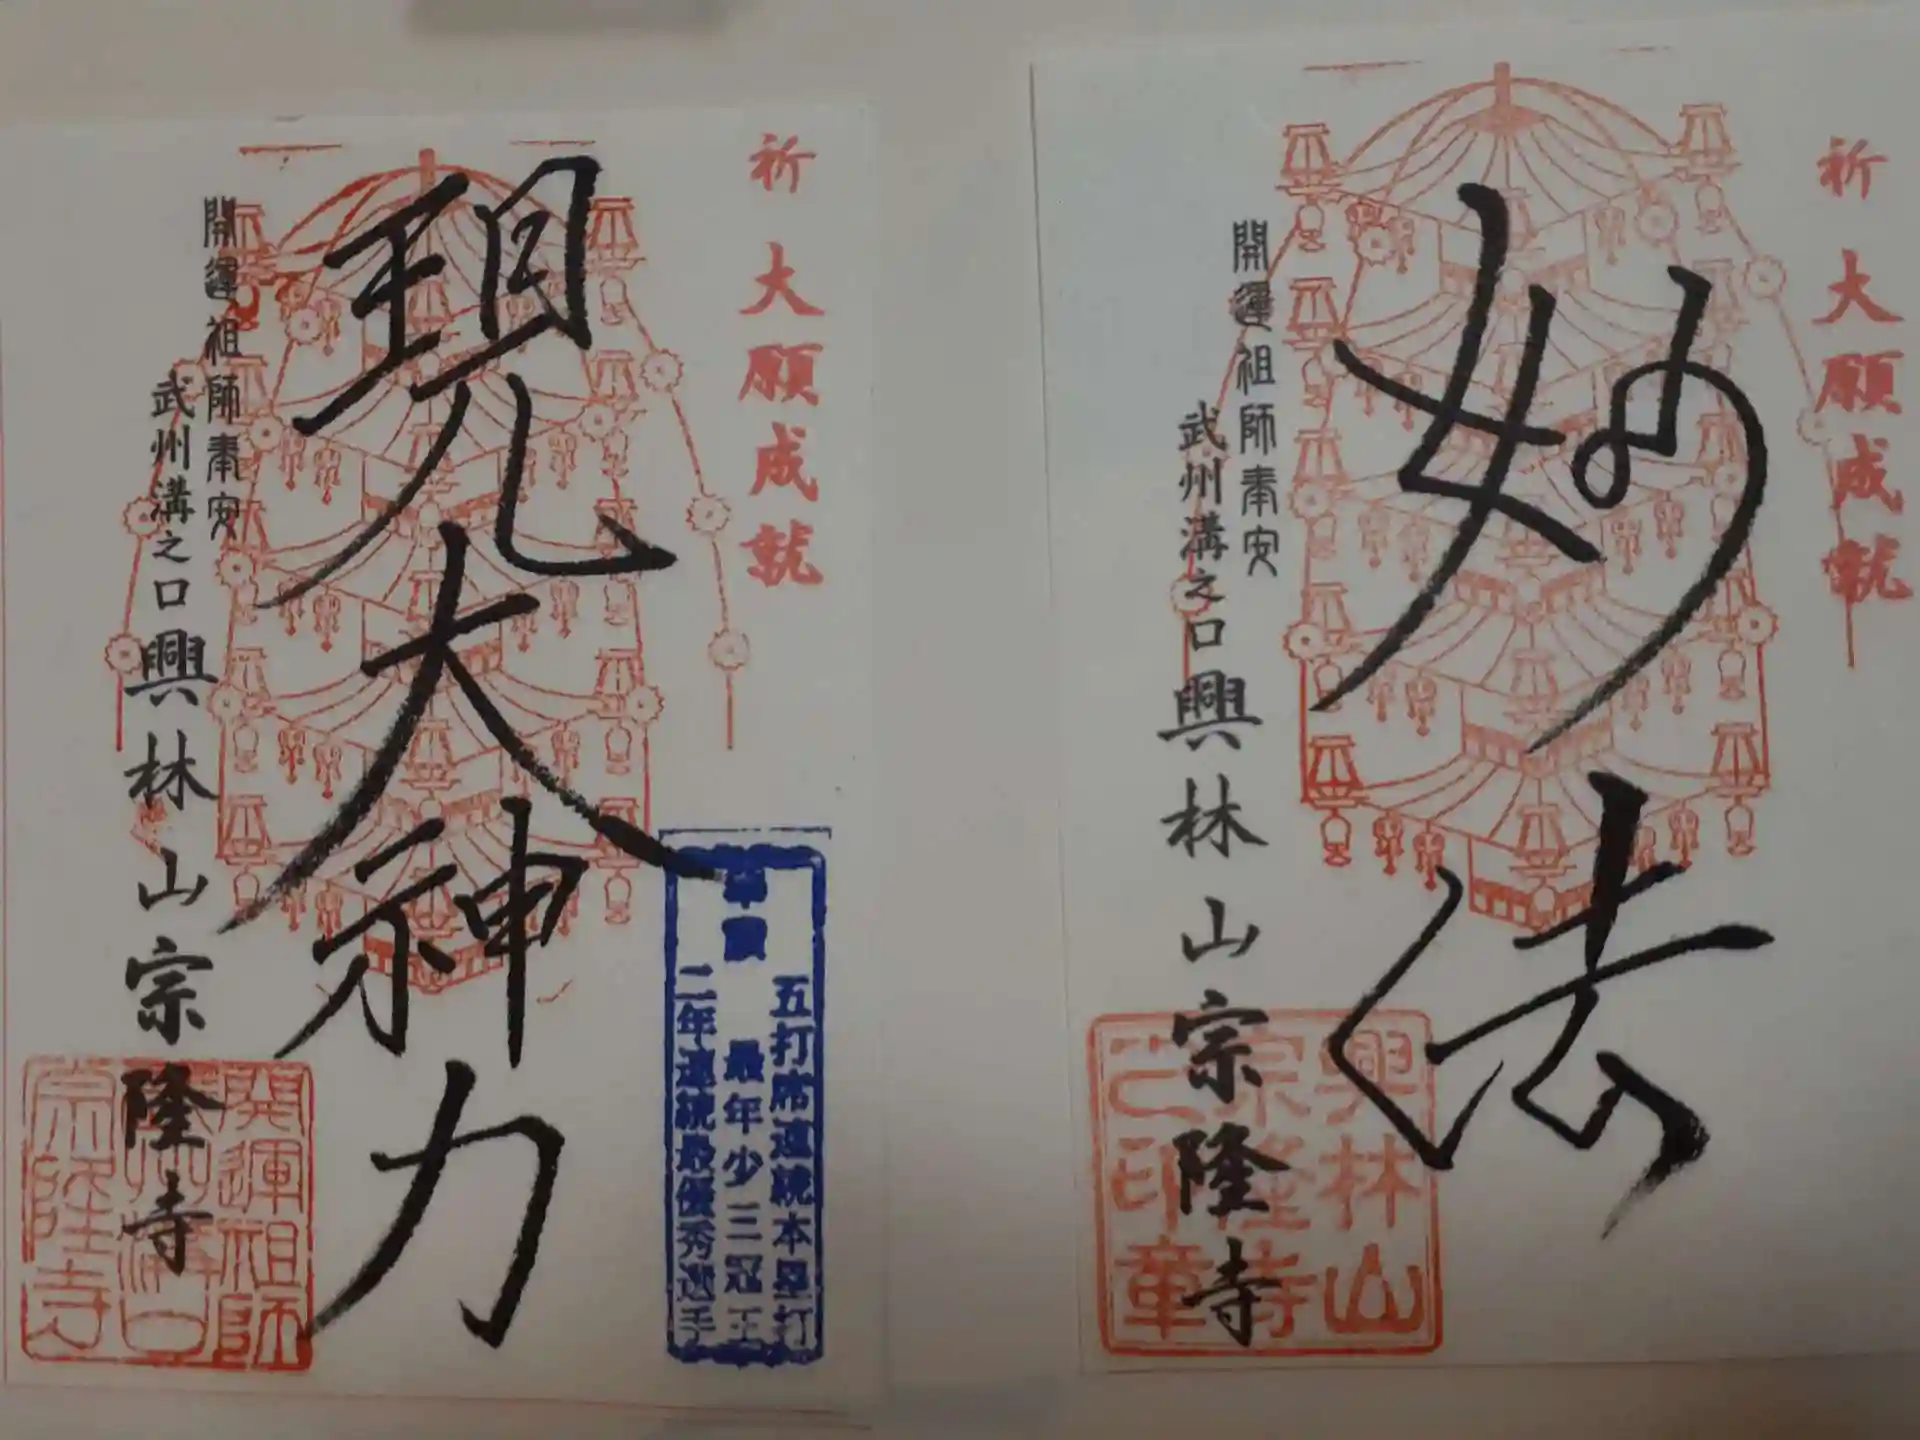 祈 大願成就
現大神力
開運祖師奉安
武州溝之口興林山宗隆寺
五打席連続本塁打
最年少三冠王
二年連続最優秀選手
開運祖師
宗隆寺
祈 大願成就
妙法
開運祖師奉安
武州溝之口興林山宗隆寺
興林山
宗隆寺
之印章